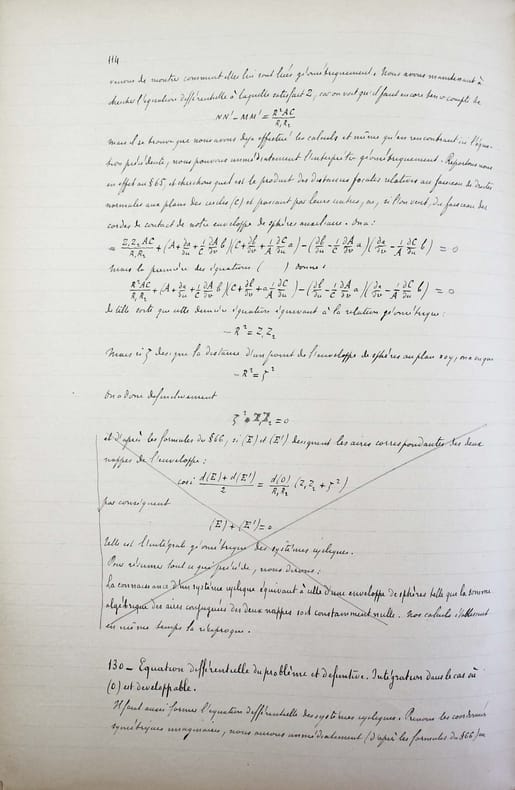 114
venons de montrer comment elles lui sont liées géométriquement. Nous avons maintenant à
chercher l'équation différentielle à laquelle satisfait Z, car on voit qu'il faut encore tenir compte de
NN' - MM' = R²AC / R₁R₂
mais il se trouve que nous avons déjà effectué les calculs et même qu'en rencontrant ici l'équa-
tion précédente, nous pouvons immédiatement l'interpréter géométriquement. Reportons nous
en effet au §65, et cherchons quel est le produit des distances focales relatives au faisceau de droites
normales aux plans des cercles (C) et passant par leurs centres, ou, si l'on veut, du faisceau des
cordes de contact de notre enveloppe de sphères auxiliaire. On a :
= Z₁Z₂AC / R₁R₂ + (A + ∂a/∂u + 1/C ∂A/∂v b)(C + ∂b/∂v + 1/A ∂C/∂u a) - (∂b/∂u - 1/C ∂A/∂v a)(∂a/∂v - 1/A ∂C/∂u b) = 0
Mais la première des équations ( ) donne :
R²AC / R₁R₂ + (A + ∂a/∂u + 1/C ∂A/∂v b)(C + ∂b/∂v + a 1/A ∂C/∂u) - (∂b/∂u - 1/C ∂A/∂v a)(∂a/∂v - 1/A ∂C/∂u b) = 0
de telle sorte que cette dernière équation équivaut à la relation géométrique :
- R² = Z₁Z₂
Mais si ζ désigne la distance d'un point de l'enveloppe de sphères au plan xoy, on a vu que
- R² = ζ²
On a donc définitivement
ζ² + Z₁Z₂ = 0
et d'après les formules du §66, si (E) et (E') désignent les aires correspondantes des deux
nappes de l'enveloppe :
cos i d(E) + d(E') / 2 = d(O) / R₁R₂ (Z₁Z₂ + ζ²)
par conséquent
(E) + (E') = 0
Telle est l'intégrale géométrique des systèmes cycliques.
Pour résumer tout ce qui précède, nous dirons :
La connaissance d'un système cyclique équivaut à celle d'une enveloppe de sphères telle que la somme
algébrique des aires conjuguées des deux nappes soit constamment nulle. Nos calculs établissent
en même temps la réciproque.
130 — Equation différentielle du problème et définitive. Intégration dans le cas où
(O) est développable.
Il faut aussi former l'équation différentielle des systèmes cycliques. Prenons les coordonnées
symétriques imaginaires, nous aurons immédiatement (d'après les formules du §66)